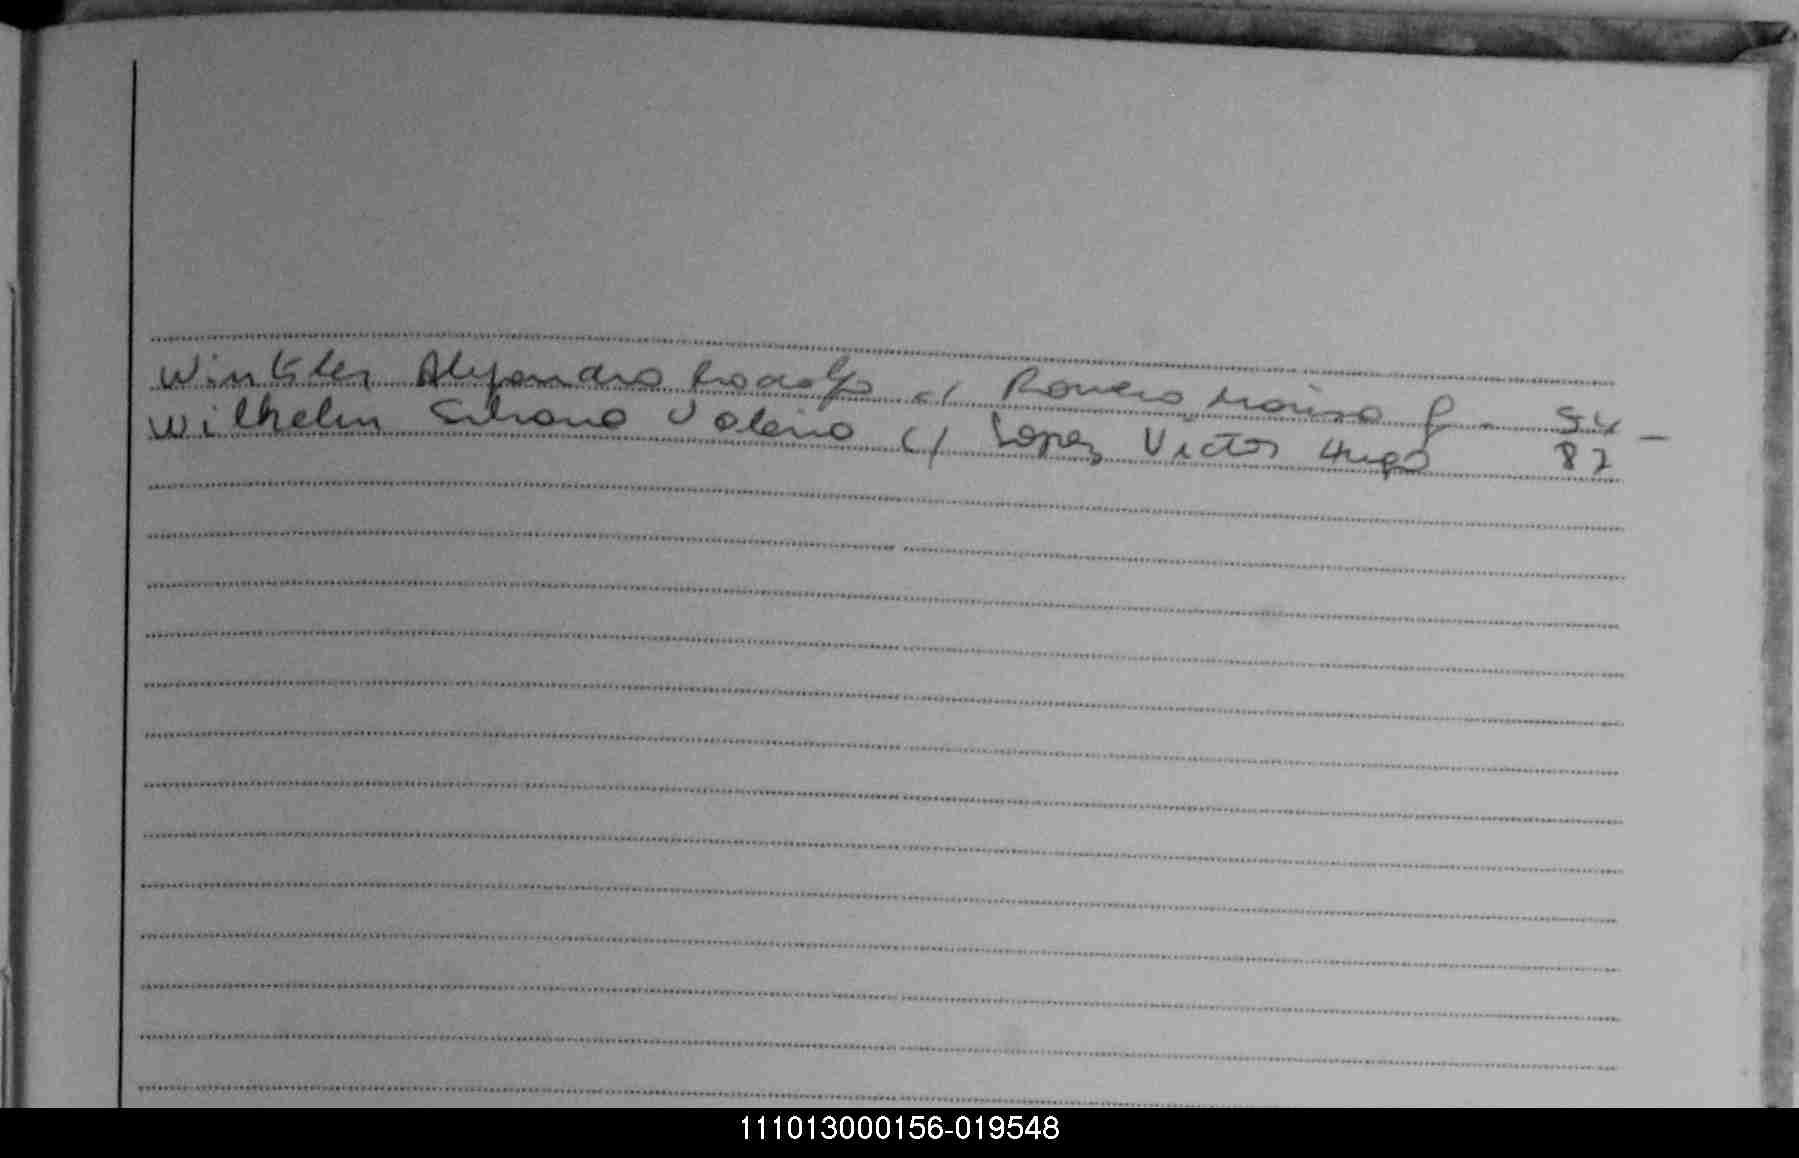 Winkler Alejandro Rodolfo c/ Romero Marisa G - 54 -
Wilhelm Silvana Valeria c/ Lopez Victor Hugo 87
111013000156-019548